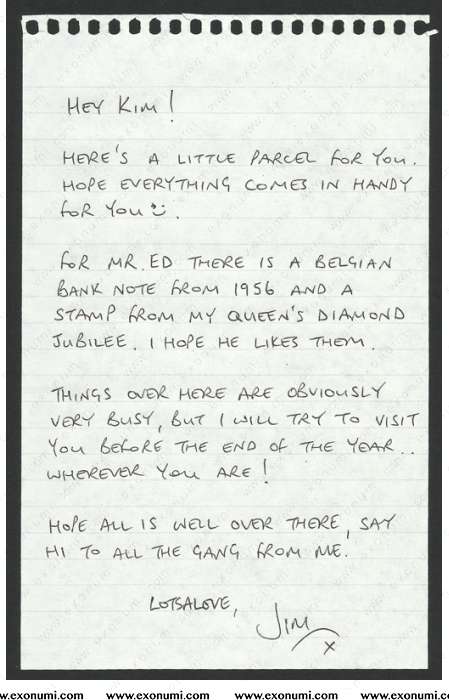 HEY KIM!
HERE'S A LITTLE PARCEL FOR YOU.
HOPE EVERYTHING COMES IN HANDY
FOR YOU :).
FOR MR. ED THERE IS A BELGIAN
BANK NOTE FROM 1956 AND A
STAMP FROM MY QUEEN'S DIAMOND
JUBILEE. I HOPE HE LIKES THEM.
THINGS OVER HERE ARE OBVIOUSLY
VERY BUSY, BUT I WILL TRY TO VISIT
YOU BEFORE THE END OF THE YEAR..
WHEREVER YOU ARE!
HOPE ALL IS WELL OVER THERE, SAY
HI TO ALL THE GANG FROM ME.
LOTSALOVE,
JIM
X
w.exonumi.com www.exonumi.com www.exonumi.com www.exonumi.com